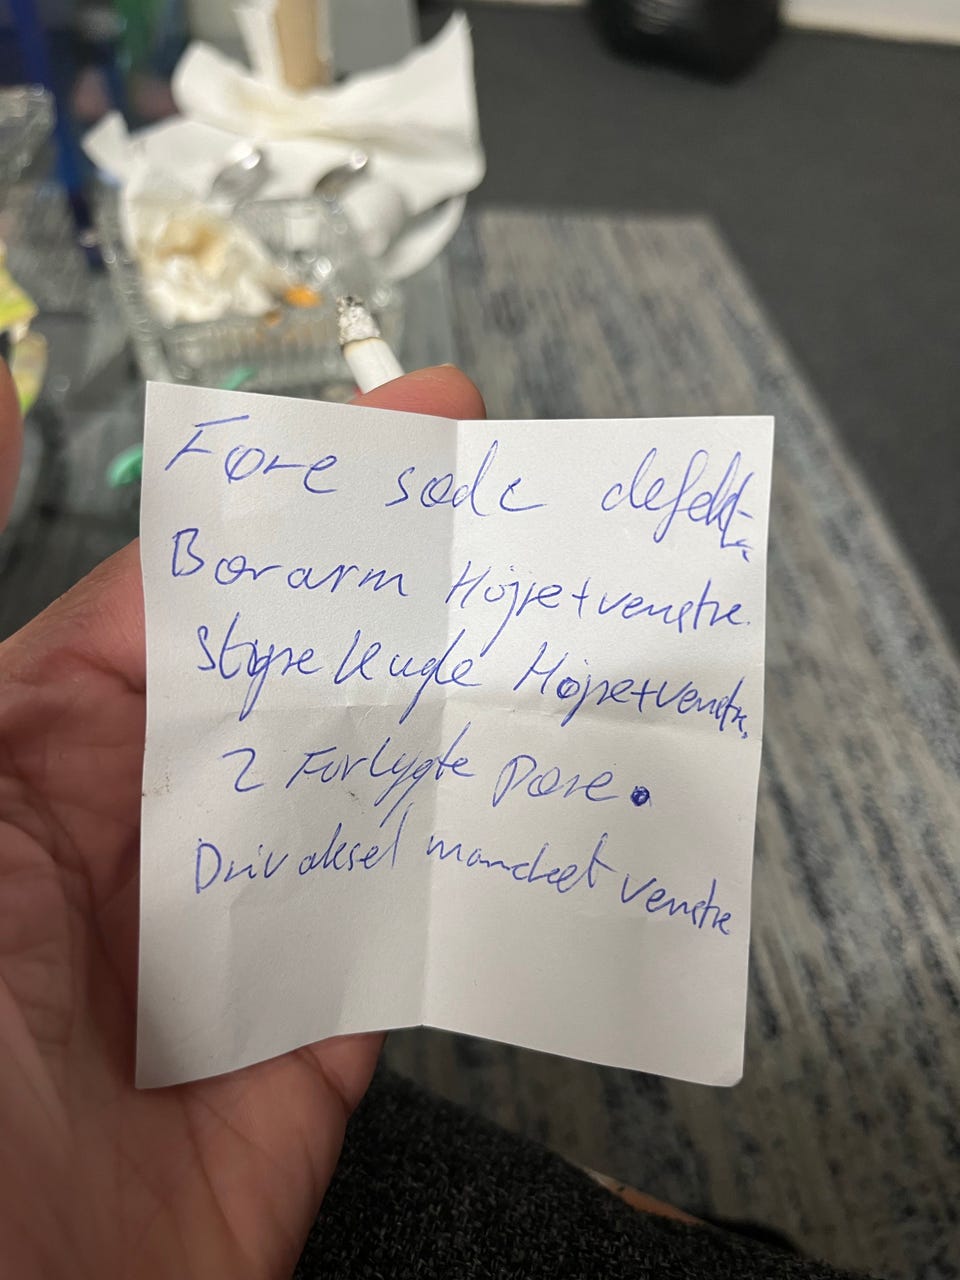 Føre sæde defekt.
Bærarm Højre+venstre.
Styre kugle Højre+venstre.
2 Forlygte Pære.
Drivaksel manchet venstre